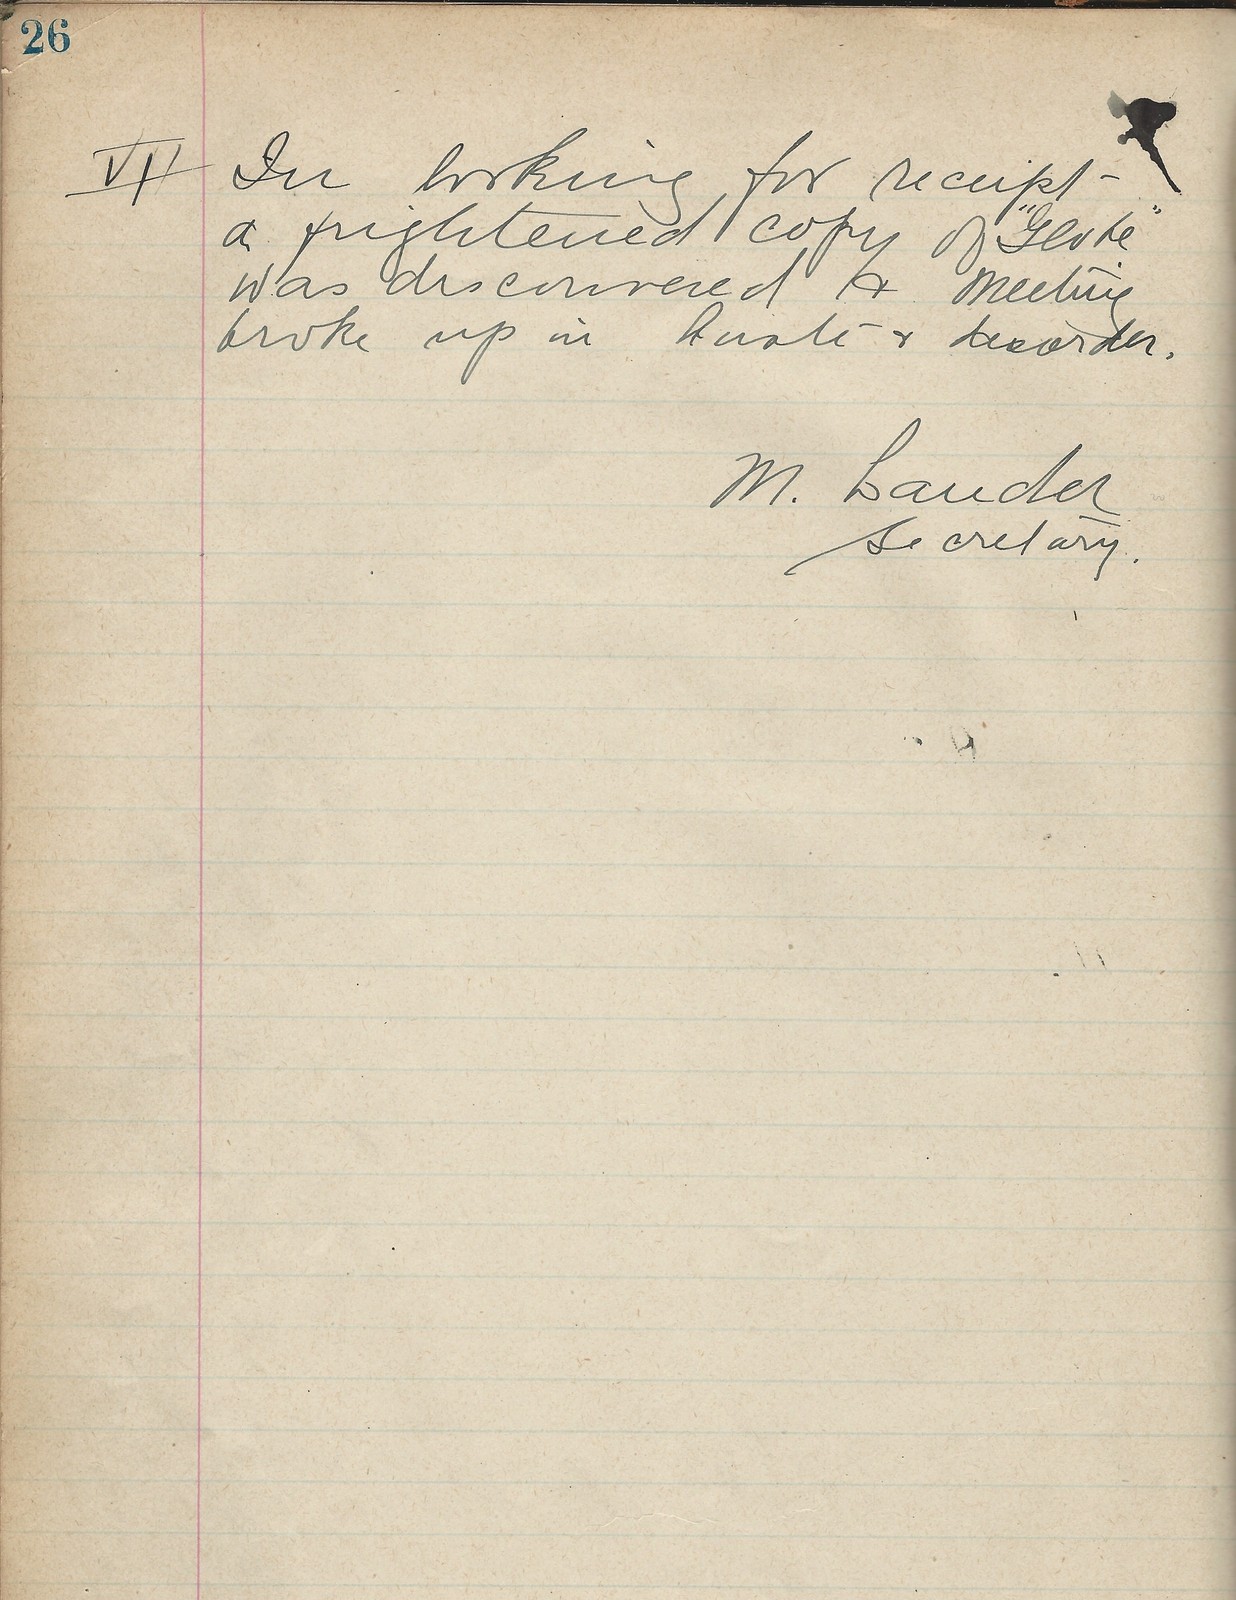 26
VI In looking for receipt -
a frightened copy of "Globe"
was discovered & meeting
broke up in & disorder.
M. Lauder
Secretary.